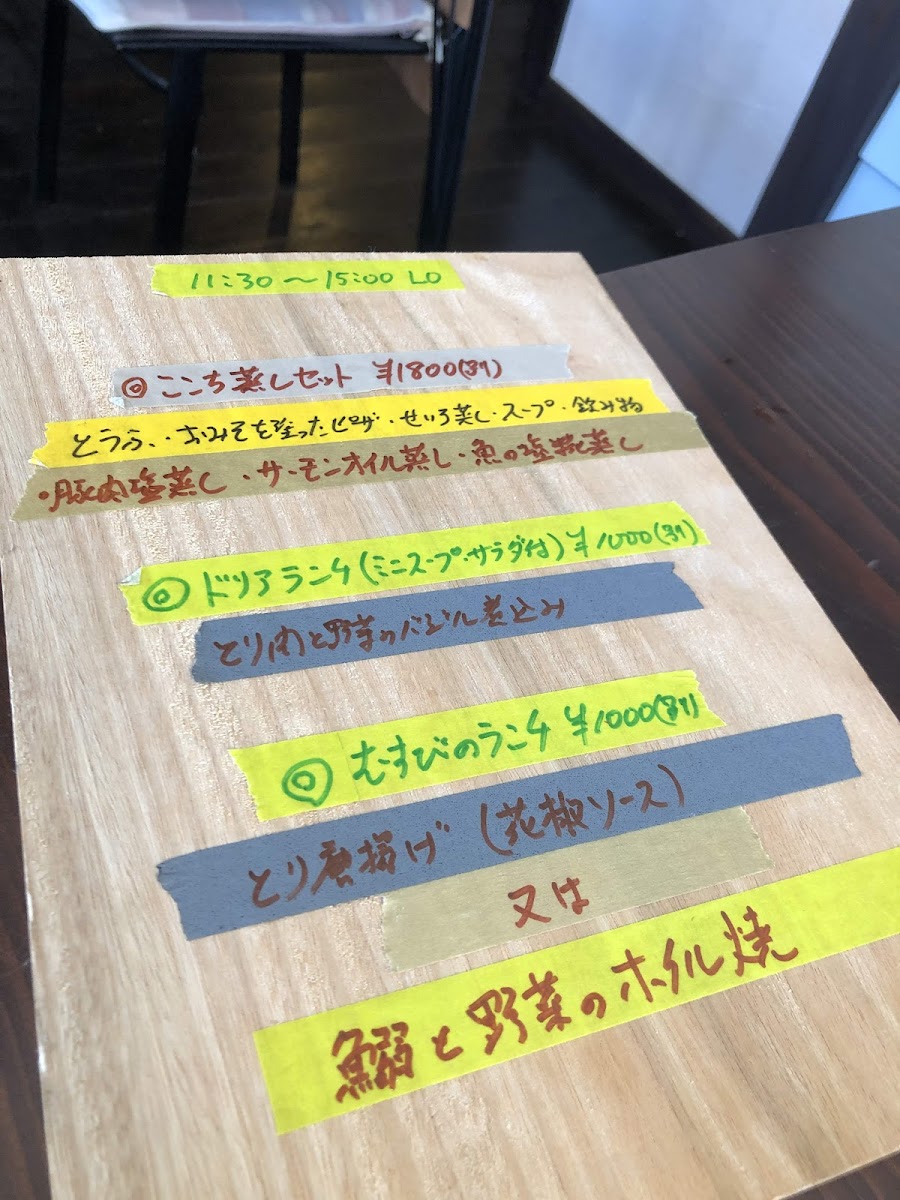 11:30～15:00 LO
◎ここち蒸しセット ¥1800(税別)
とうふ、・おみそを塗ったピザ・せいろ蒸し・スープ・飲み物
・豚肉塩蒸し・サーモンオイル蒸し・魚の塩麹蒸し
◎ドリアランチ(ミニスープ・サラダ付) ¥1000(税別)
とり肉と野菜のバジル煮込み
◎むすびのランチ ¥1000(税別)
とり唐揚げ (花椒ソース)
又は
鰯と野菜のホイル焼